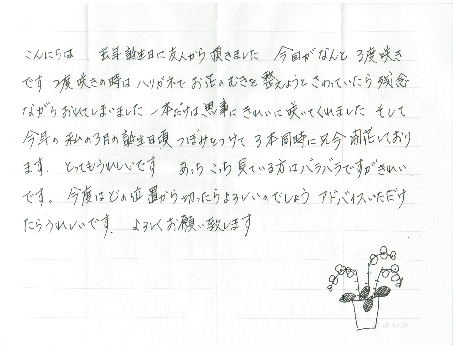 こんにちは 去年誕生日に友人から頂きました 今回がなんと3度咲き
です 2度咲きの時はハリガネでお花のむきを整えようとさわっていたら残念
ながらおれてしまいました 一本だけは無事にきれいに咲いてくれました そして
今年の私の3月の誕生日頃つぼみをつけて3本同時に只今開花しており
ます. とってもうれしいです あっちこっち見ている方はバラバラですがきれい
です. 今度はどの位置から切ったらよろしいのでしょう アドバイスいただけ
たらうれしいです. よろしくお願い致します